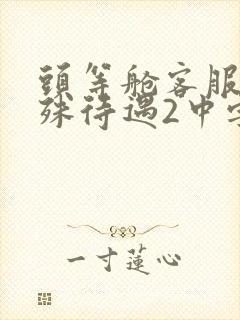 頭等舱客服
殊待遇2中字
一寸蓮心